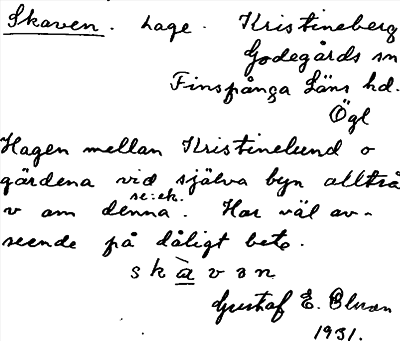 Skaven. Lage. Kristineberg
Godegårds sn
Finspånga Läns hd.
Ögl
Hagen mellan Kristinelund o
gärdena vid själva byn alltså
v om denna. Har väl av-
se: ek.
seende på dåligt bete.
s k à v ə n
Gustaf E.
1931.